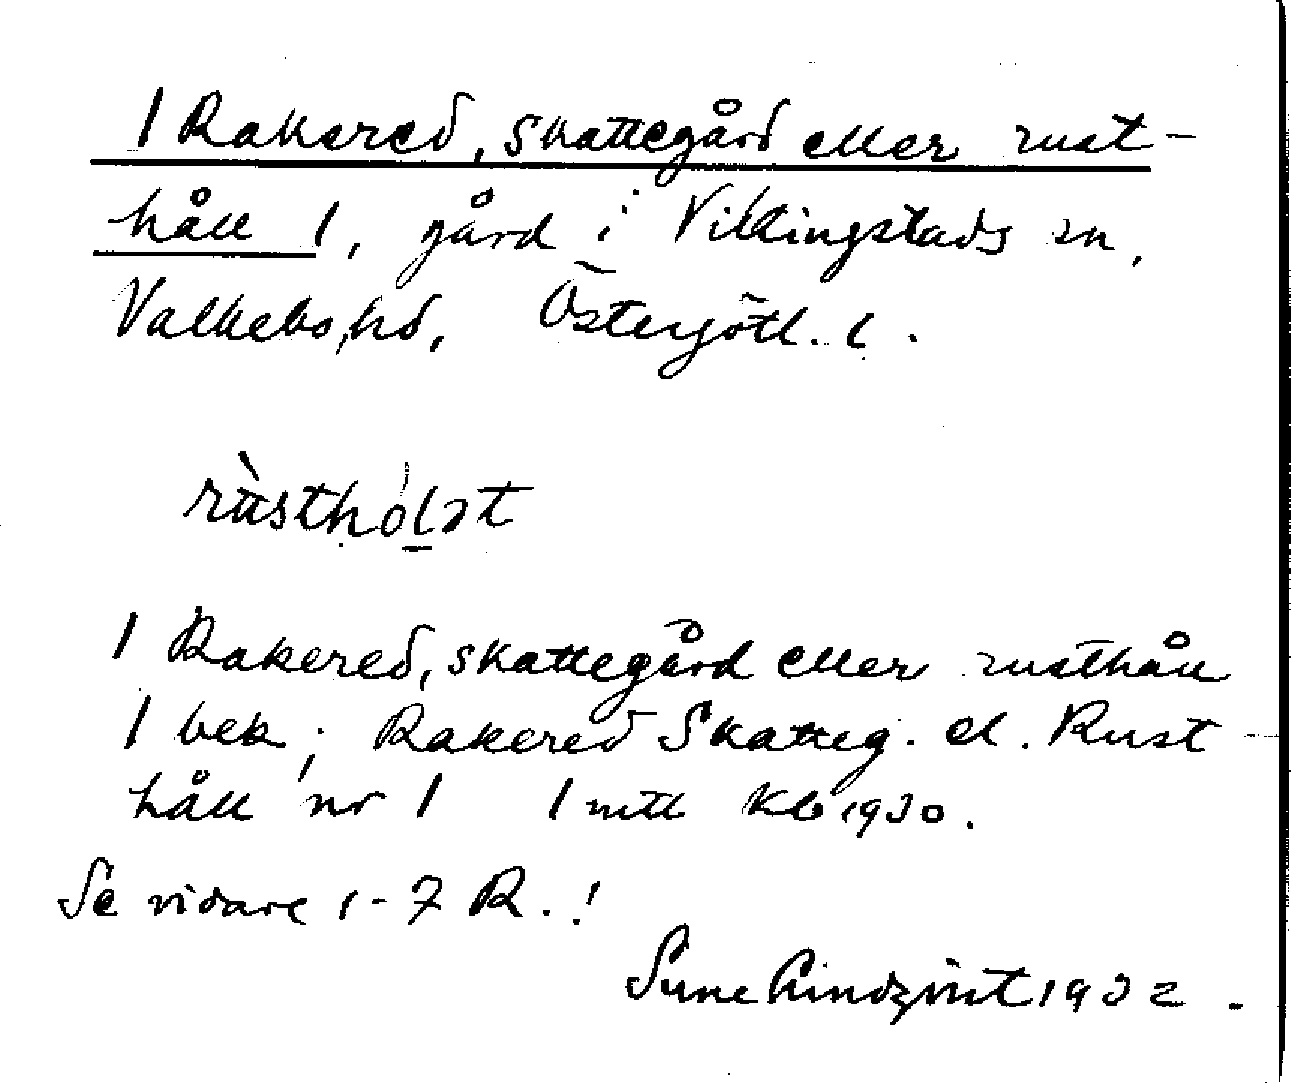 1 Rakered, Skattegård eller rust-
håll 1, gård i Vikingstads sn,
Valkebo hd, Östergötl. l.
rùsthólət
1 Rakered, skattegård eller rusthåll
1 bek; Rakered Skatteg. el. Rust-
håll nr 1 1 mtl Kb 1930.
Se vidare 1-7 R.!
Sune Lindqvist 1932.